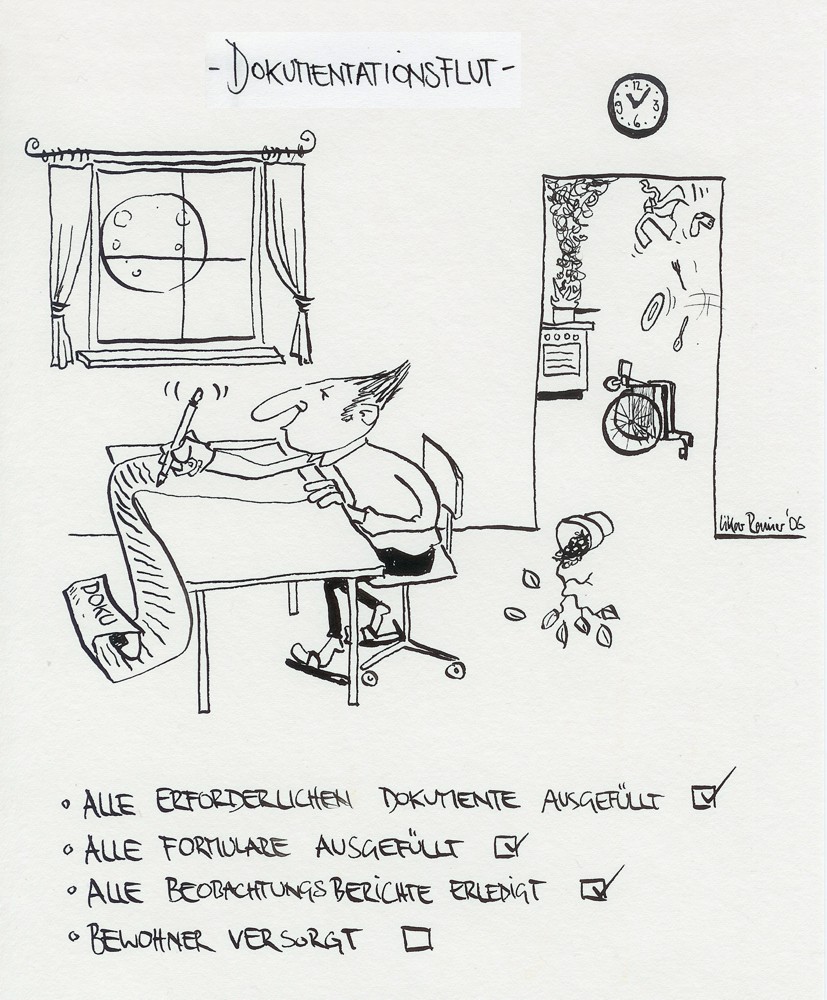 - DOKUMENTATIONSFLUT -
12
9 3
6
DOKU
'06
• ALLE ERFORDERLICHEN DOKUMENTE AUSGEFÜLLT ☑
• ALLE FORMULARE AUSGEFÜLLT ☑
• ALLE BEOBACHTUNGSBERICHTE ERLEDIGT ☑
• BEWOHNER VERSORGT ☐